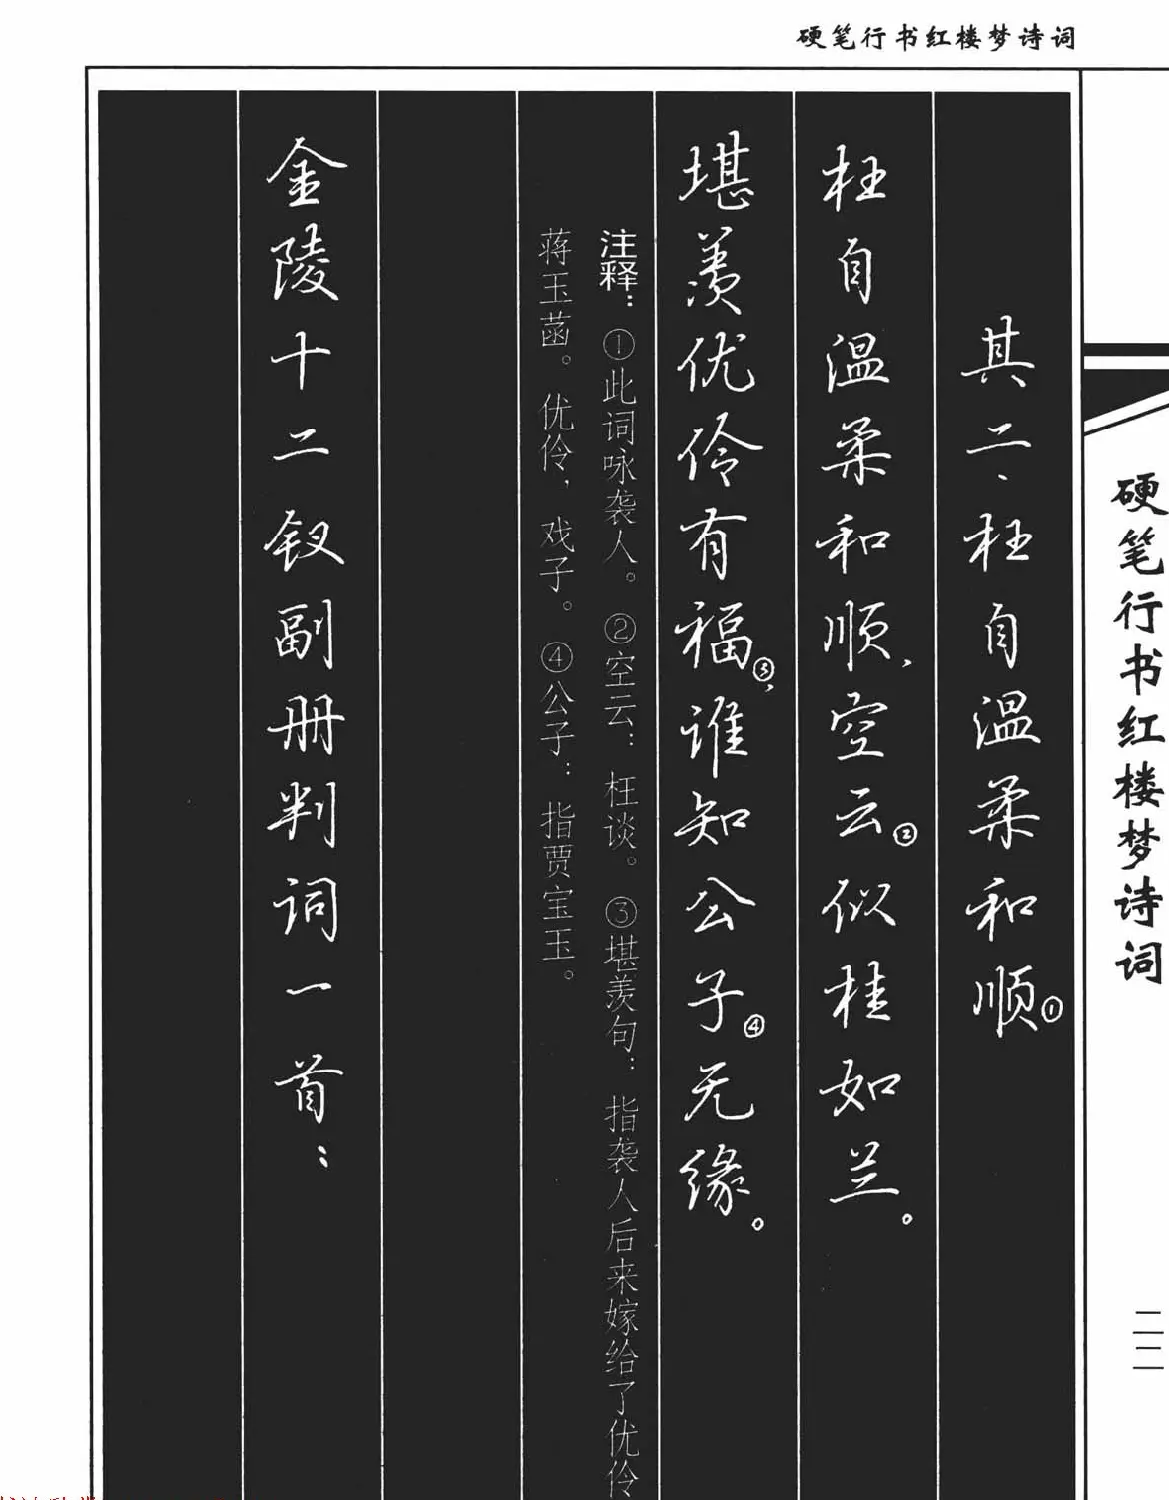 硬笔行书红楼梦诗词
其二、枉自温柔和顺①
枉自温柔和顺，空云②似桂如兰。
堪羡优伶有福③，谁知公子④无缘。
注释：①此词咏袭人。②空云：枉谈。③堪羡句：指袭人后来嫁给了优伶
蒋玉菡。优伶，戏子。④公子：指贾宝玉。
金陵十二钗副册判词一首：
硬笔行书红楼梦诗词